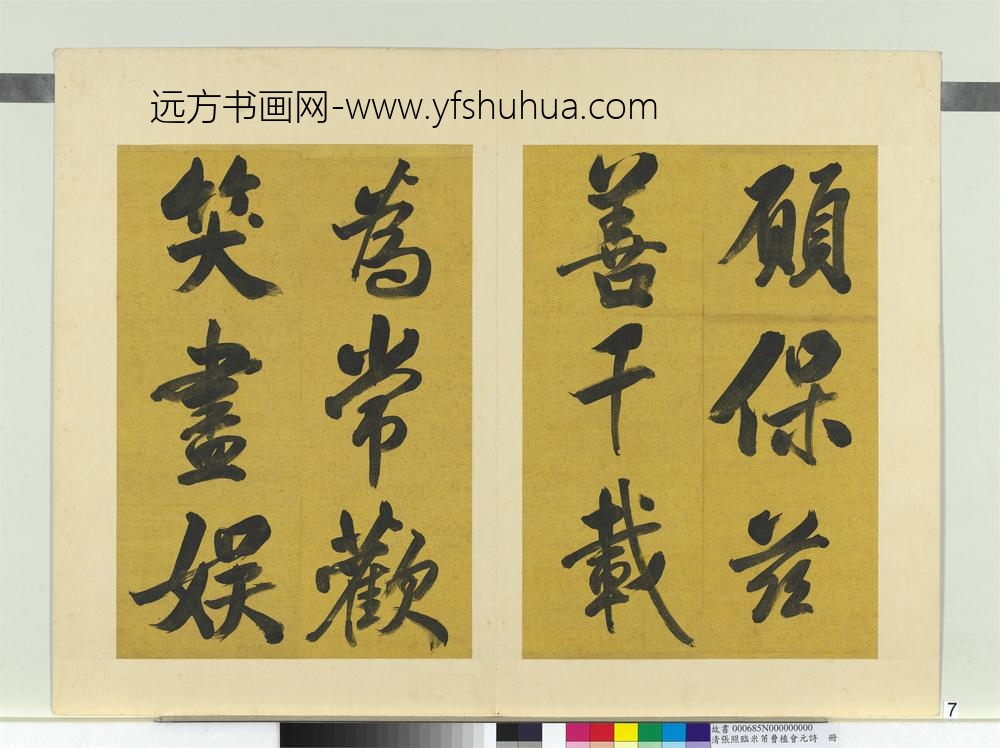 远方书画网-www.yfshuhua.com
願保兹
善千載
為常歡
笑盡娱
7
故書 000685N000000000
清張照臨米芾曹植會元詩 冊